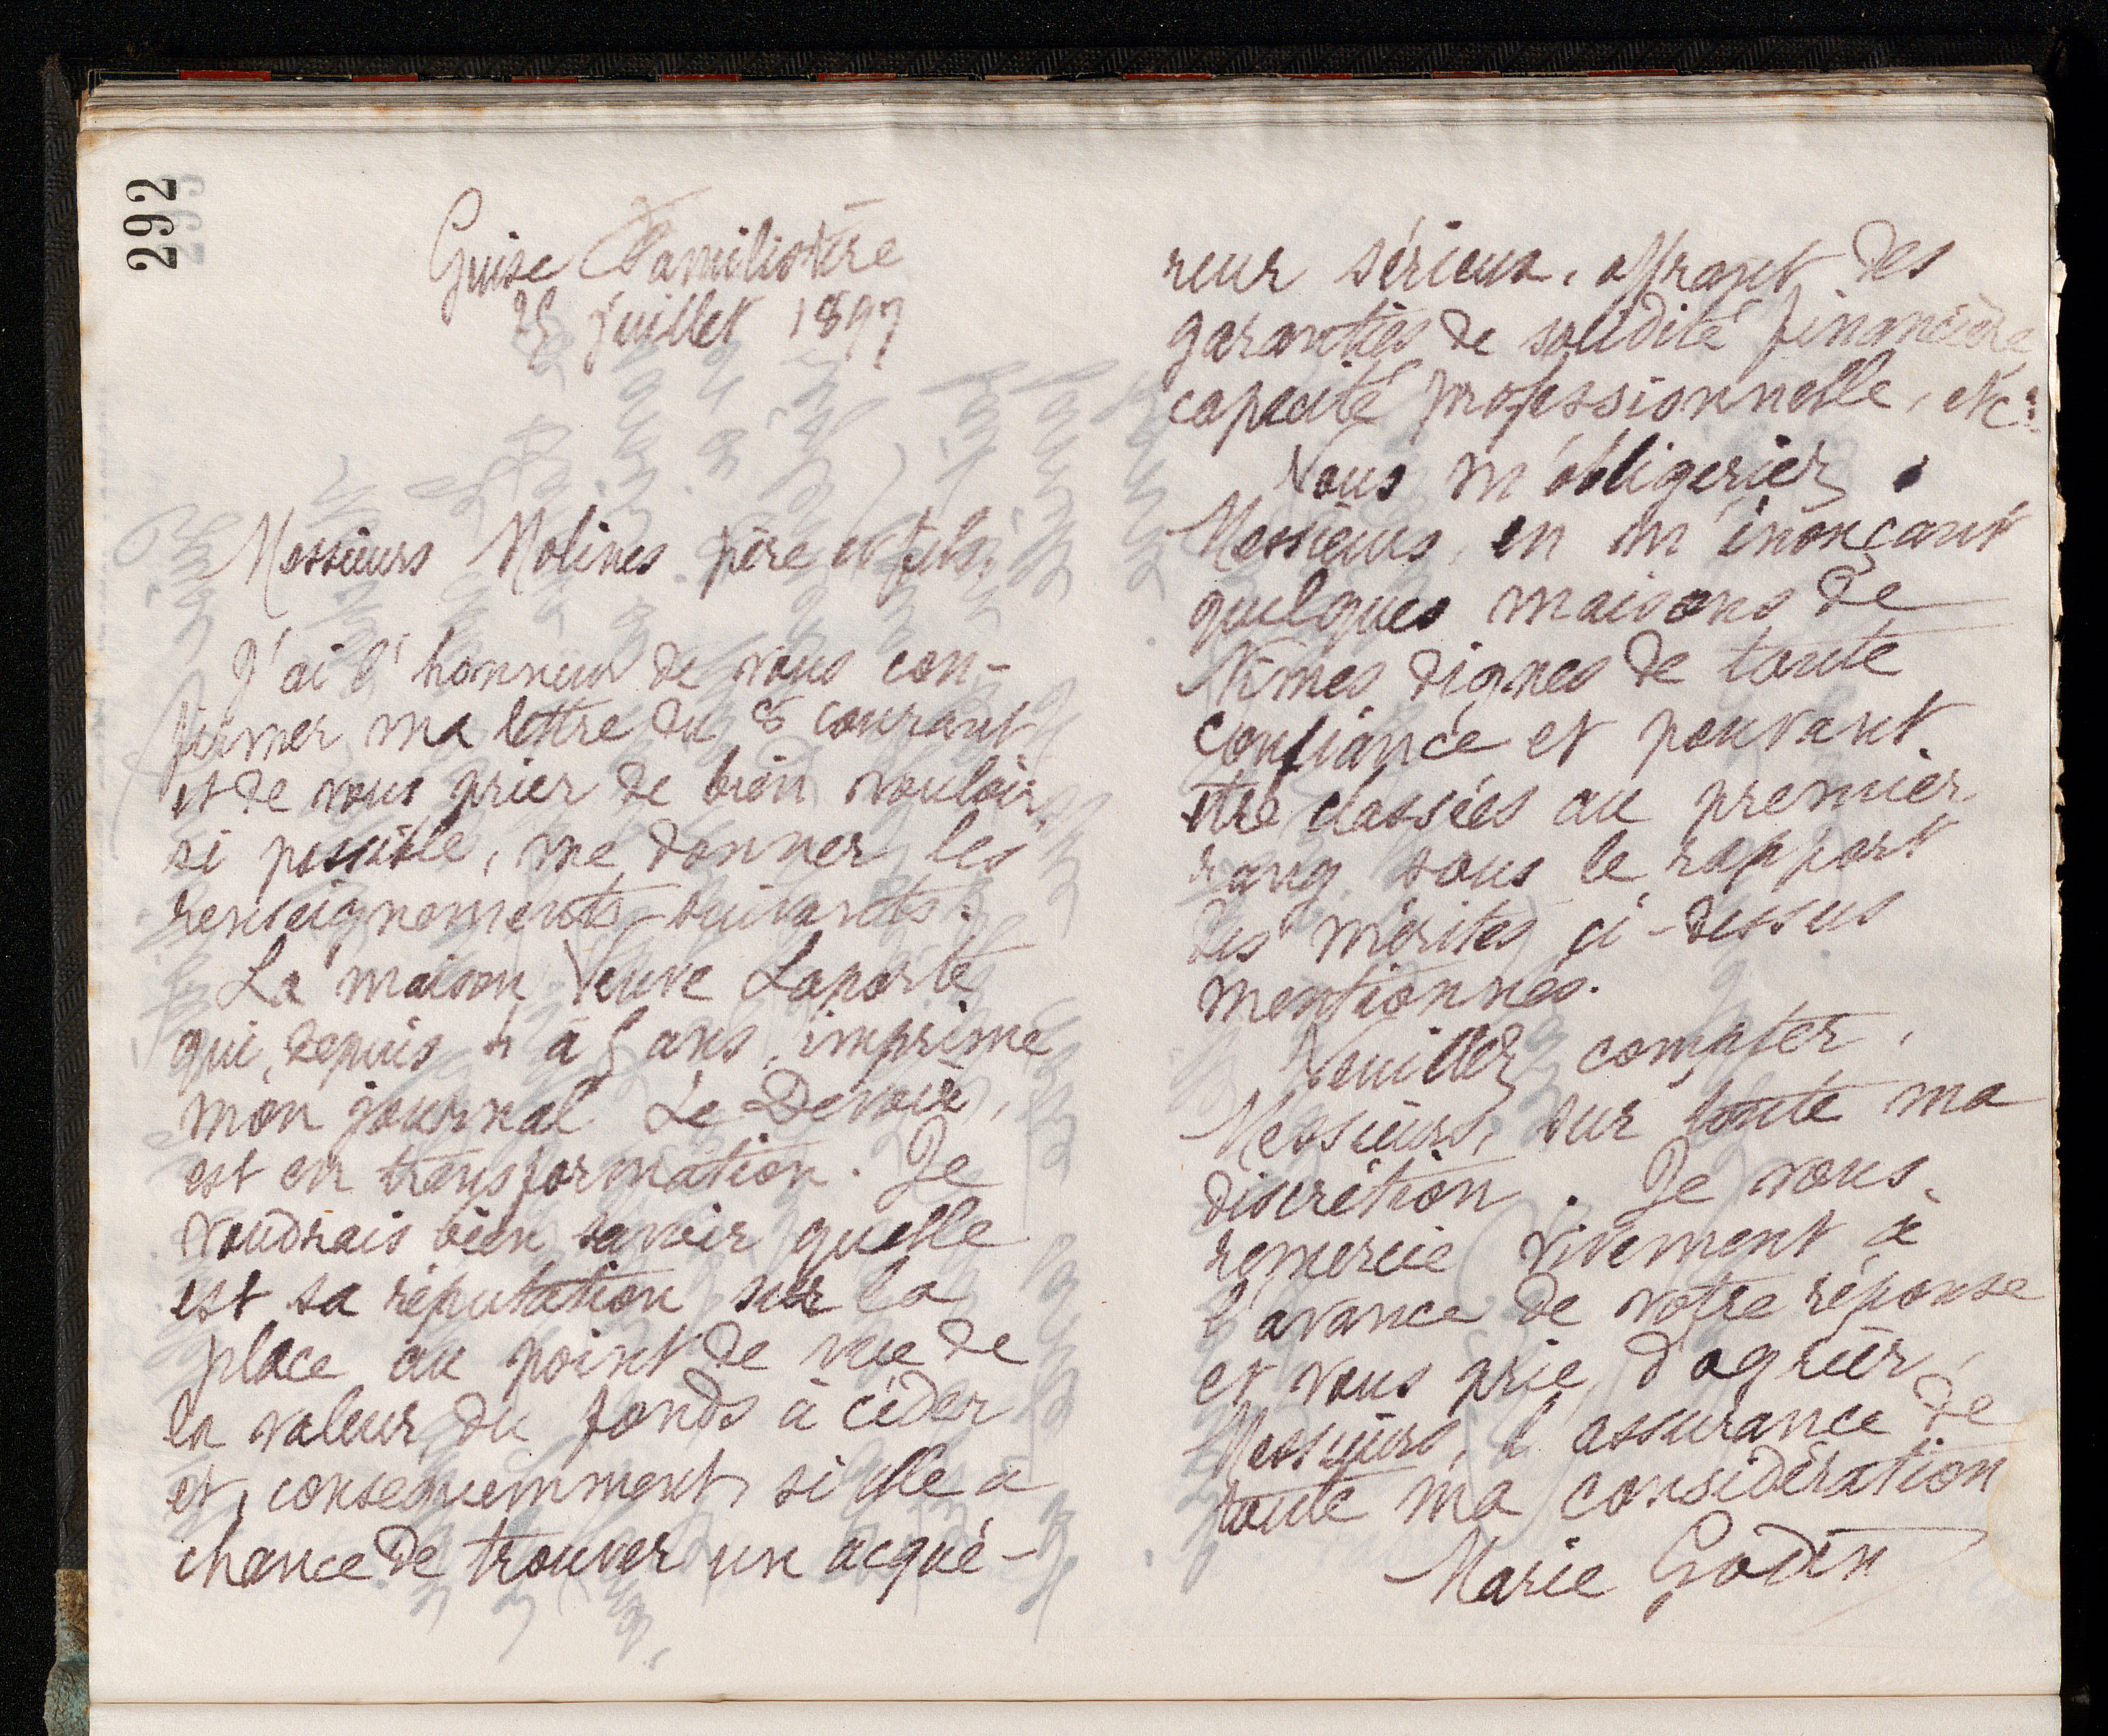 292
Guise Familistère
25 juillet 1897
Messieurs Molines père et fils,
J'ai l'honneur de vous con-
firmer ma lettre du 8 courant
et de vous prier de bien vouloir,
si possible, me donner les
renseignements suivants :
La maison Veuve Laporte
qui, depuis 4 à 5 ans, imprime
mon journal Le Devoir,
est en transformation. Je
voudrais bien savoir quelle
est sa réputation sur la
place au point de vue de
la valeur du fonds à céder
et, conséquemment, si elle a
chance de trouver un acqué-
reur sérieux, offrant des
garanties de solidité financière,
capacité professionnelle, etc.
Vous m'obligeriez,
Messieurs, en m'énonçant
quelques maisons de
Nîmes dignes de toute
confiance et pouvant
être classées au premier
rang sous le rapport
des mérites ci-dessus
mentionnés.
Veuillez compter,
Messieurs, sur toute ma
discrétion. Je vous
remercie vivement à
l'avance de votre réponse
et vous prie d'agréer,
Messieurs, l'assurance de
toute ma considération
Marie Godin